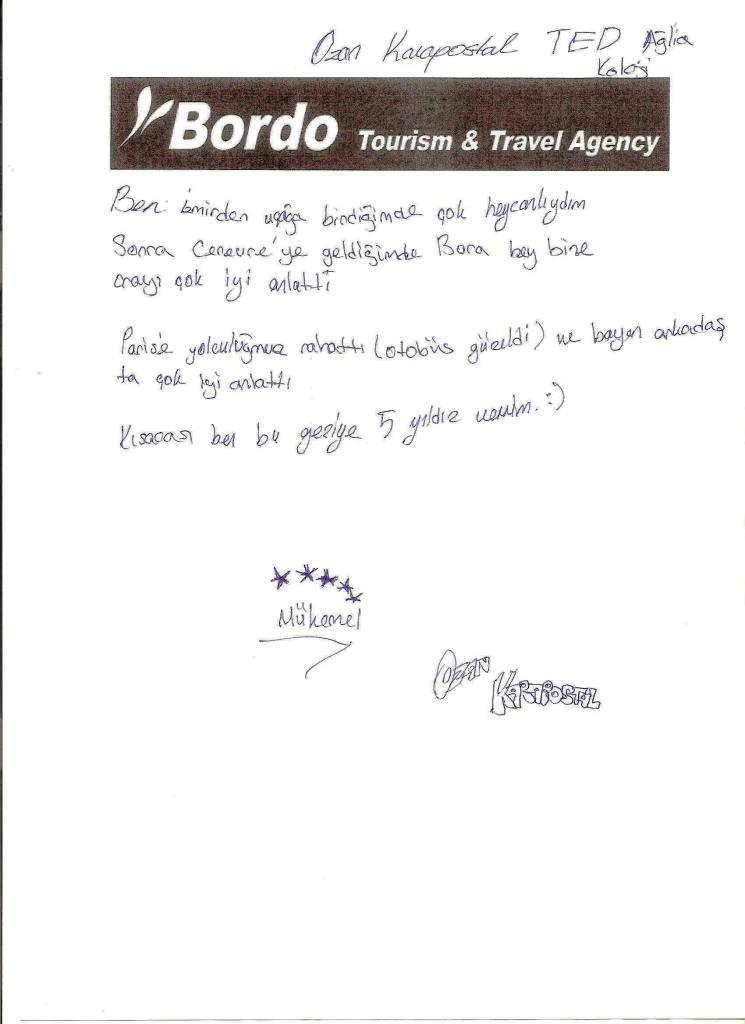 Ozan Karapostal TED Ağlia
Koleji
Bordo Tourism & Travel Agency
Ben izmirden uçağa bindiğimde çok heycanlıydım
Sonra Cenevre'ye geldiğimde Bora bey bize
orayı çok iyi anlattı
Paris'e yolculuğmuz rahattı (otobüs güzeldi) ve bayan arkadaş
ta çok iyi anlattı
Kısacası ben bu geziye 5 yıldız veririm. :)
Mükemel
OZAN
KARAPOSTAL